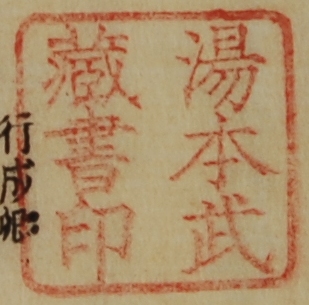 湯本武
藏書印
行成